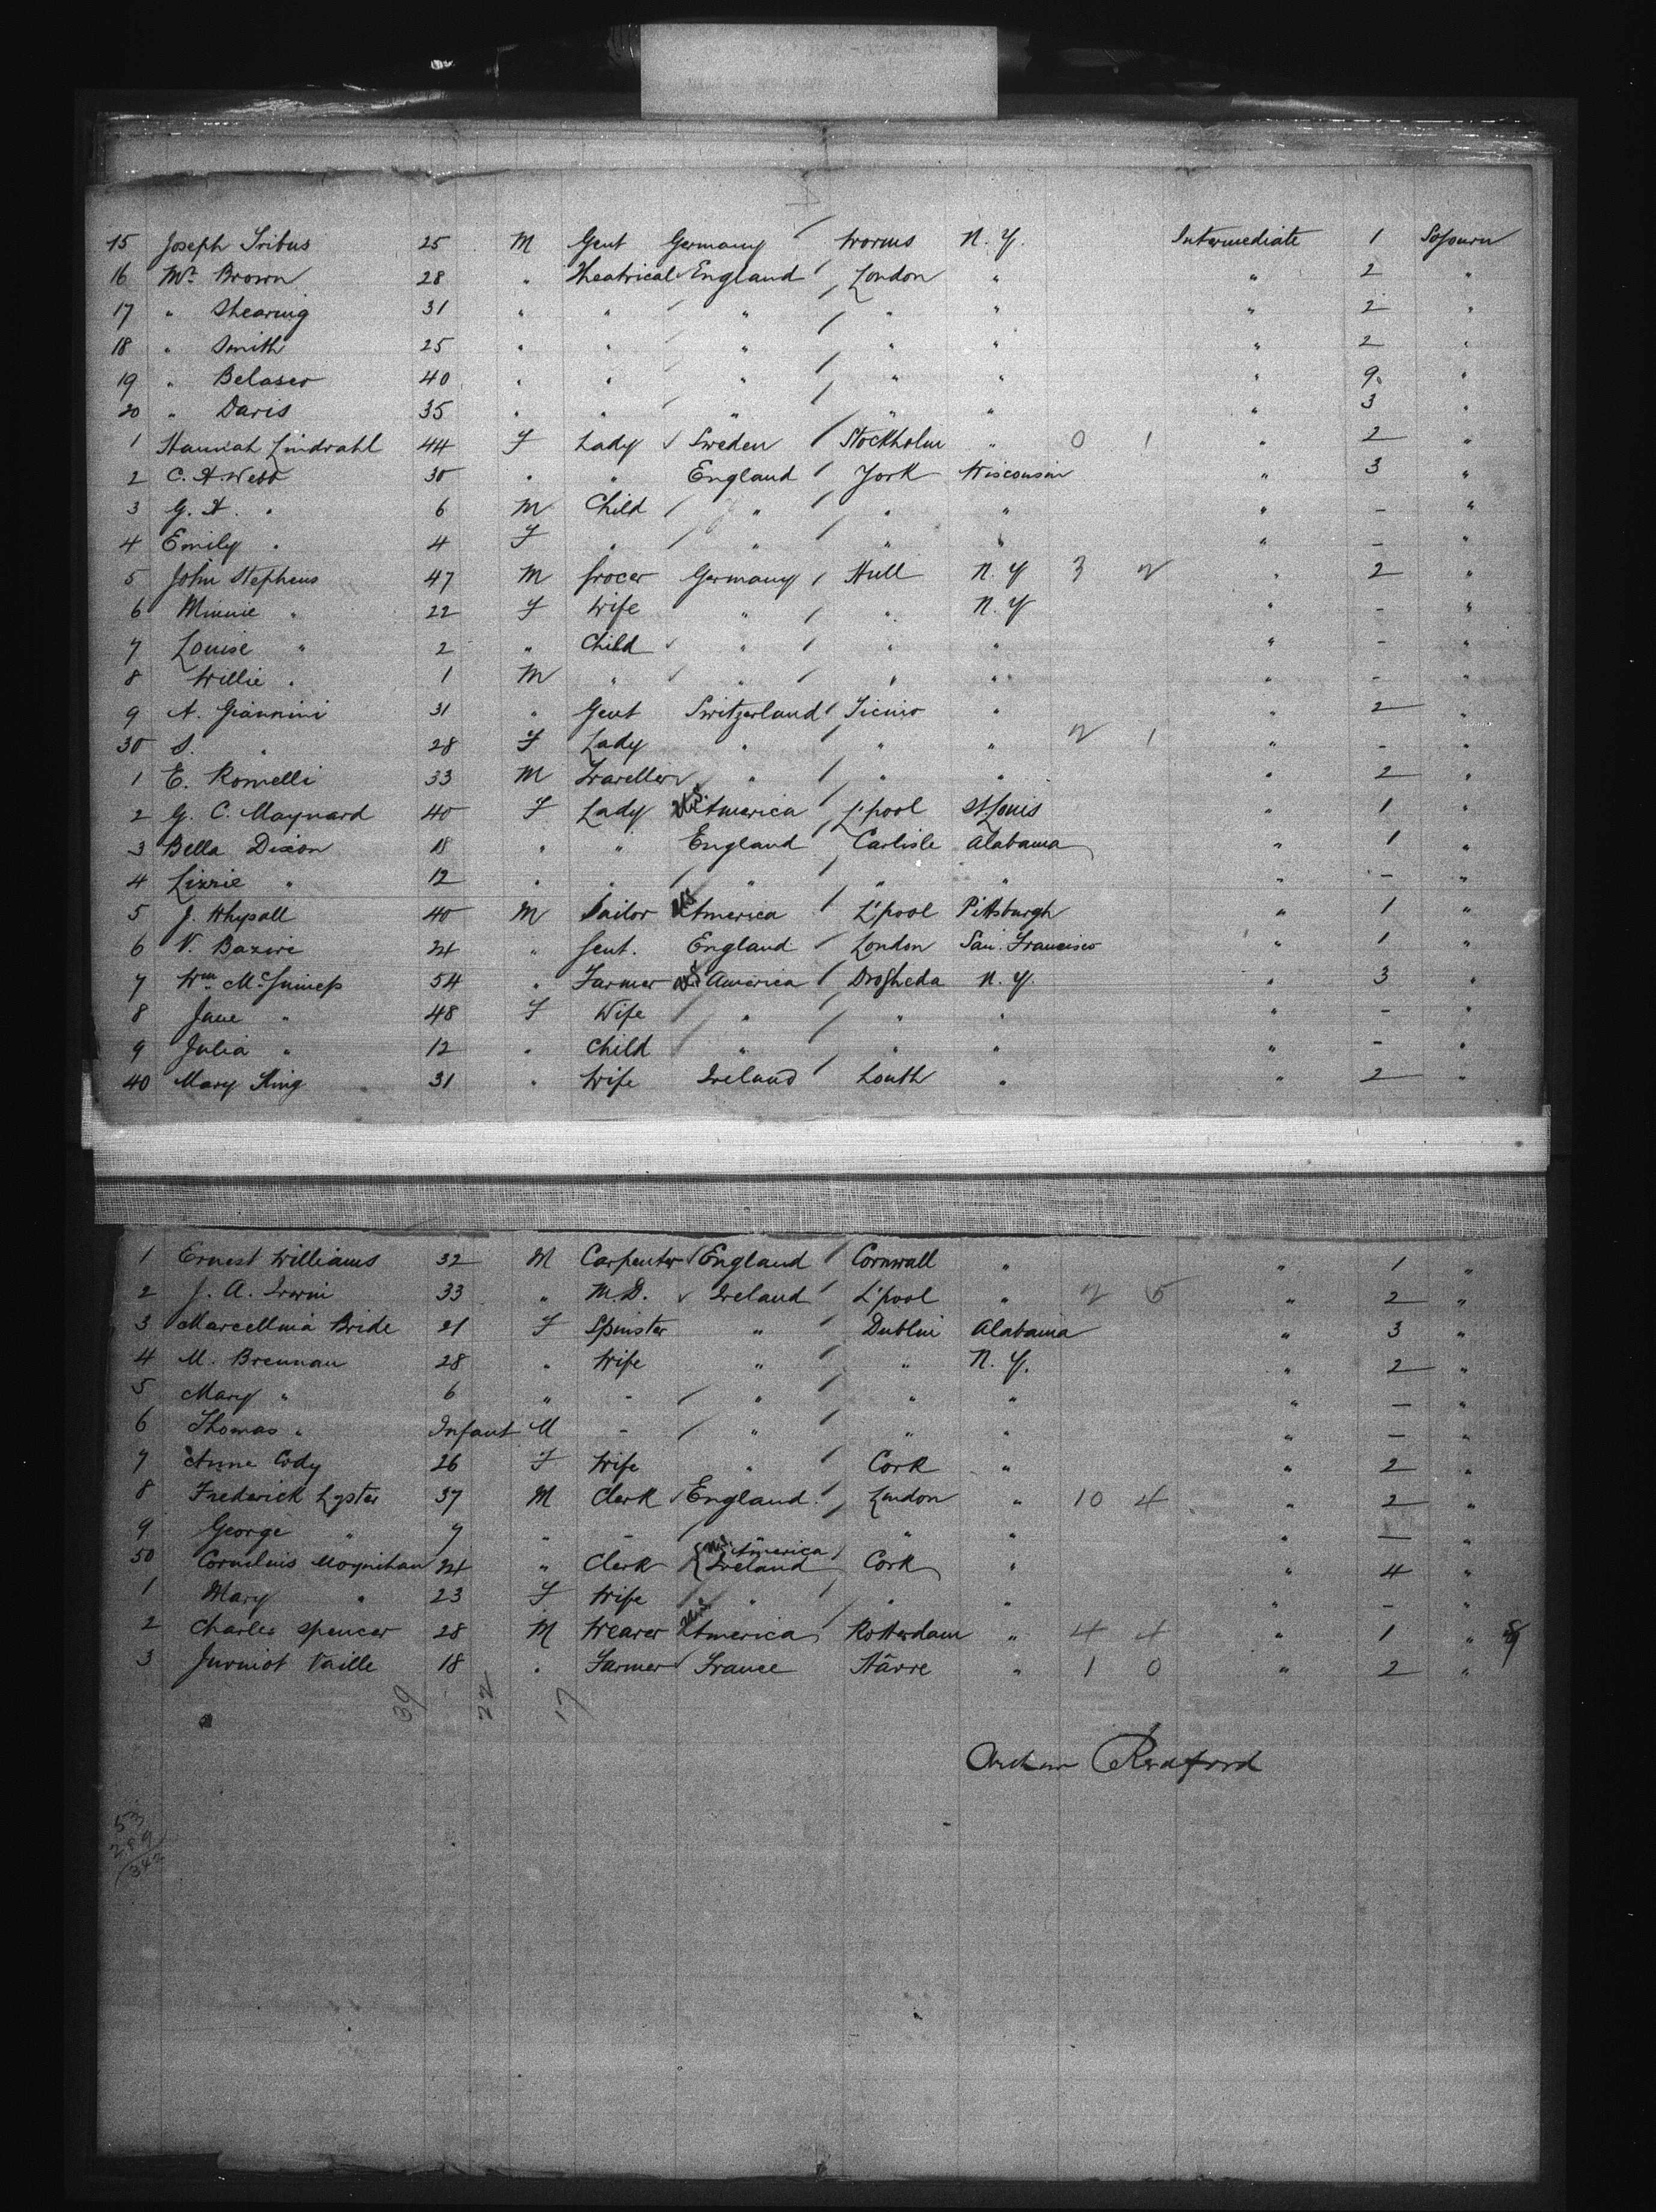 15 Joseph Tribus 25 M Gent Germany Worms N.Y. Intermediate 1 Sojourn
16 Mr. Brown 28 " Theatrical England London " " 2 "
17 " Shearing 31 " " " " " " 2 "
18 " Smith 25 " " " " " " 2 "
19 " Belasco 40 " " " " " 9 "
20 " Davis 35 " " " " " " 3 "
1 Hannah Lindvahl 44 F Lady Sweden Stockholm " 0 1 " 2 "
2 C. A. Webb 30 " " England York Wisconsin " 3 "
3 G. A. " 6 M Child " " " " - "
4 Emily " 4 F " " " " " - "
5 John Stephens 47 M Grocer Germany Hull N.Y 3 2 " 2 "
6 Minnie " 22 F Wife " " N.Y " - "
7 Louise " 2 " Child " " " " - "
8 Willie " 1 M " " " " " - "
9 A. Giannini 31 " Gent Switzerland Ticino " " 2 "
30 S. " 28 F Lady " " " 2 1 " - "
1 E. Romelli 33 M Traveller " " " " 2 "
2 G. C. Maynard 40 F Lady US America L'pool St Louis " 1 "
3 Bella Dixon 18 " " England Carlisle Alabama " 1 "
4 Lizzie " 12 " " " " " " - "
5 J. Whysall 40 M Sailor US America L'pool Pittsburgh " 1 "
6 V. Bazire 24 " Gent. England London San. Francisco " 1 "
7 Wm. McGuiness 54 " Farmer US America Drogheda N.Y. " 3 "
8 Jane " 48 F Wife " " " " - "
9 Julia " 12 " Child " " " " - "
40 Mary King 31 " Wife Ireland Louth " " 2 "
1 Ernest Williams 32 M Carpenter England Cornwall " " 1 "
2 J. A. Irwin 33 " M.D. Ireland L'pool " 2 5 " 2 "
3 Marcellina Bride 21 F Spinster " Dublin Alabama " 3 "
4 M. Brennan 28 " Wife " " N.Y. " 2 "
5 Mary " 6 " - " " " " - "
6 Thomas " Infant M - " " " " - "
7 Anne Cody 26 F Wife " Cork " " 2 "
8 Frederick Lyster 37 M Clerk England London " 10 4 " 2 "
9 George " 7 " - " " " - "
50 Cornelius Moynihan 24 " Clerk America Ireland Cork " " 4 "
1 Mary " 23 F Wife " " " " - "
2 Charles Spencer 28 M Weaver America Rotterdam " 4 4 " 1 "
3 Vaille 18 " Farmer France Hâvre " 1 0 " 2 "
39 22 17
Redford
53
289
342